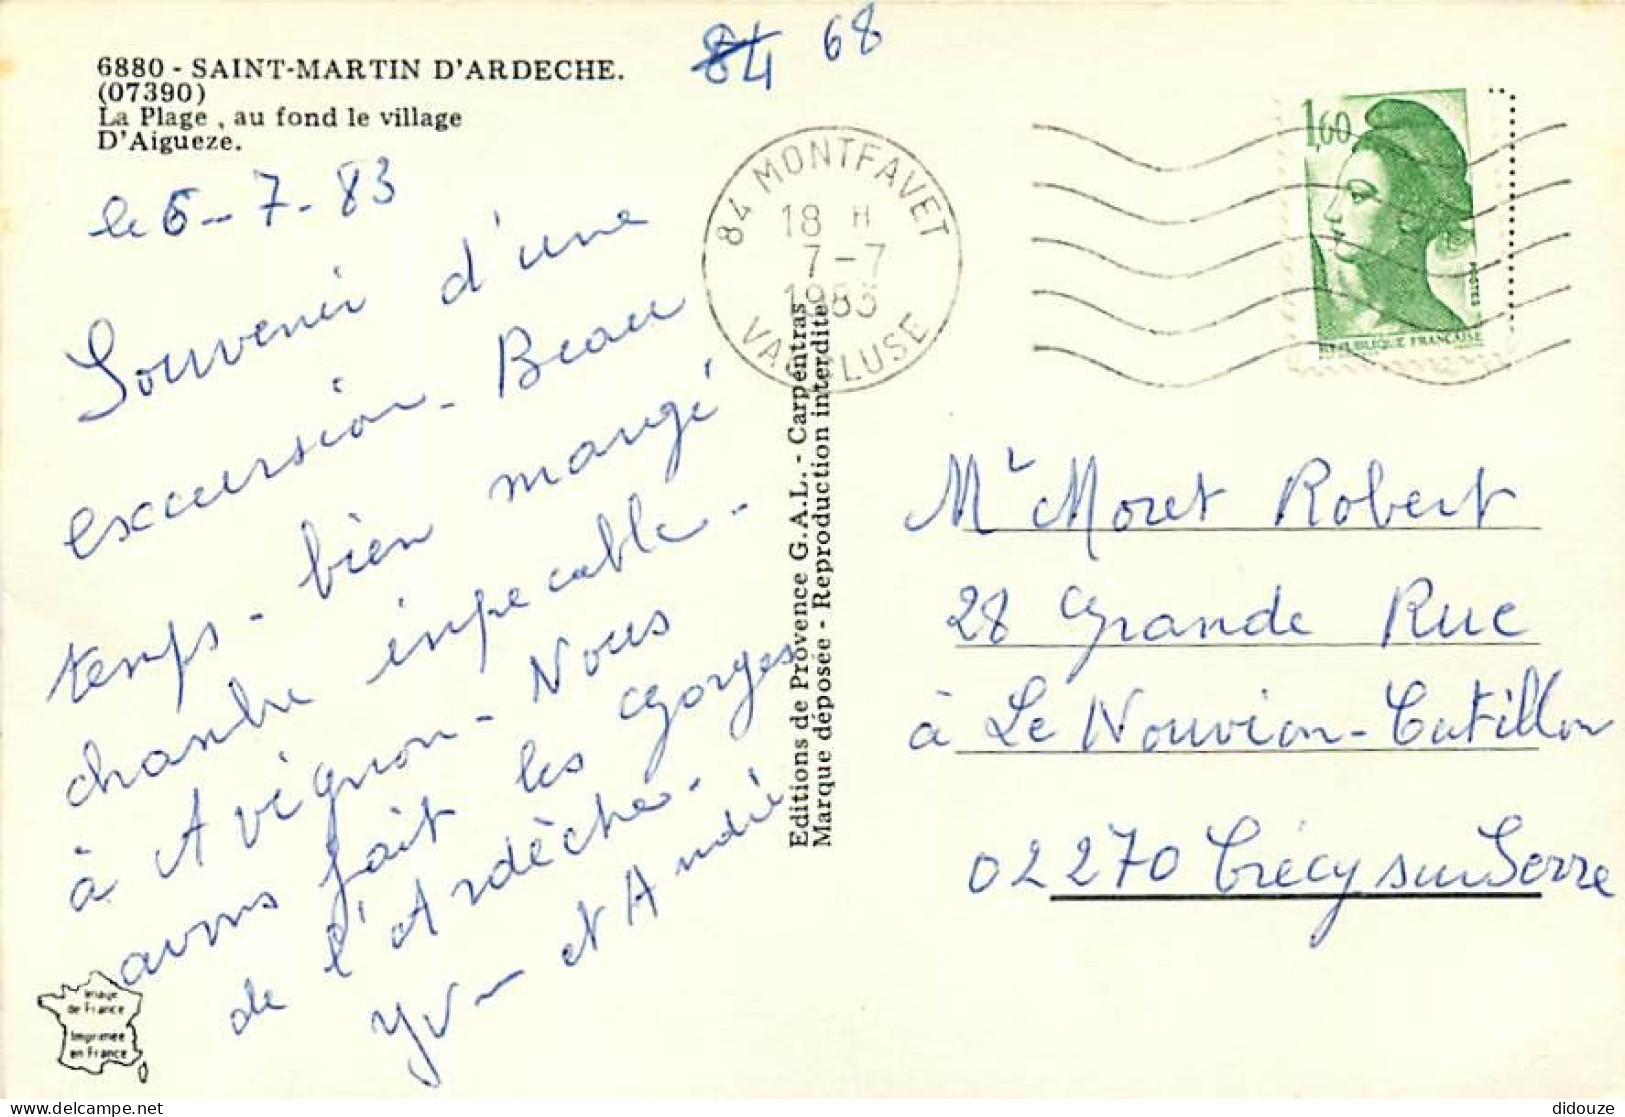 84 68
6880 - SAINT-MARTIN D'ARDECHE.
(07390)
La Plage , au fond le village
D'Aigueze.
le 6-7-83
Souvenir d'une
excursion - Beau
temps - bien mangé
chambre impecable -
à Avignon - Nous
avons fait les Gorges
de l'Ardèche -
et André
84 MONTFAVET
18 H
7-7
1983
VAUCLUSE
1,60
POSTES
REPUBLIQUE FRANÇAISE
Editions de Provence G.A.L. - Carpentras
Marque déposée - Reproduction interdite
Mr Moret Robert
28 Grande Rue
à Le Nouvion-Catillon
02270 Crécy sur Serre
Image
de France
Imprimée
en France
didouze